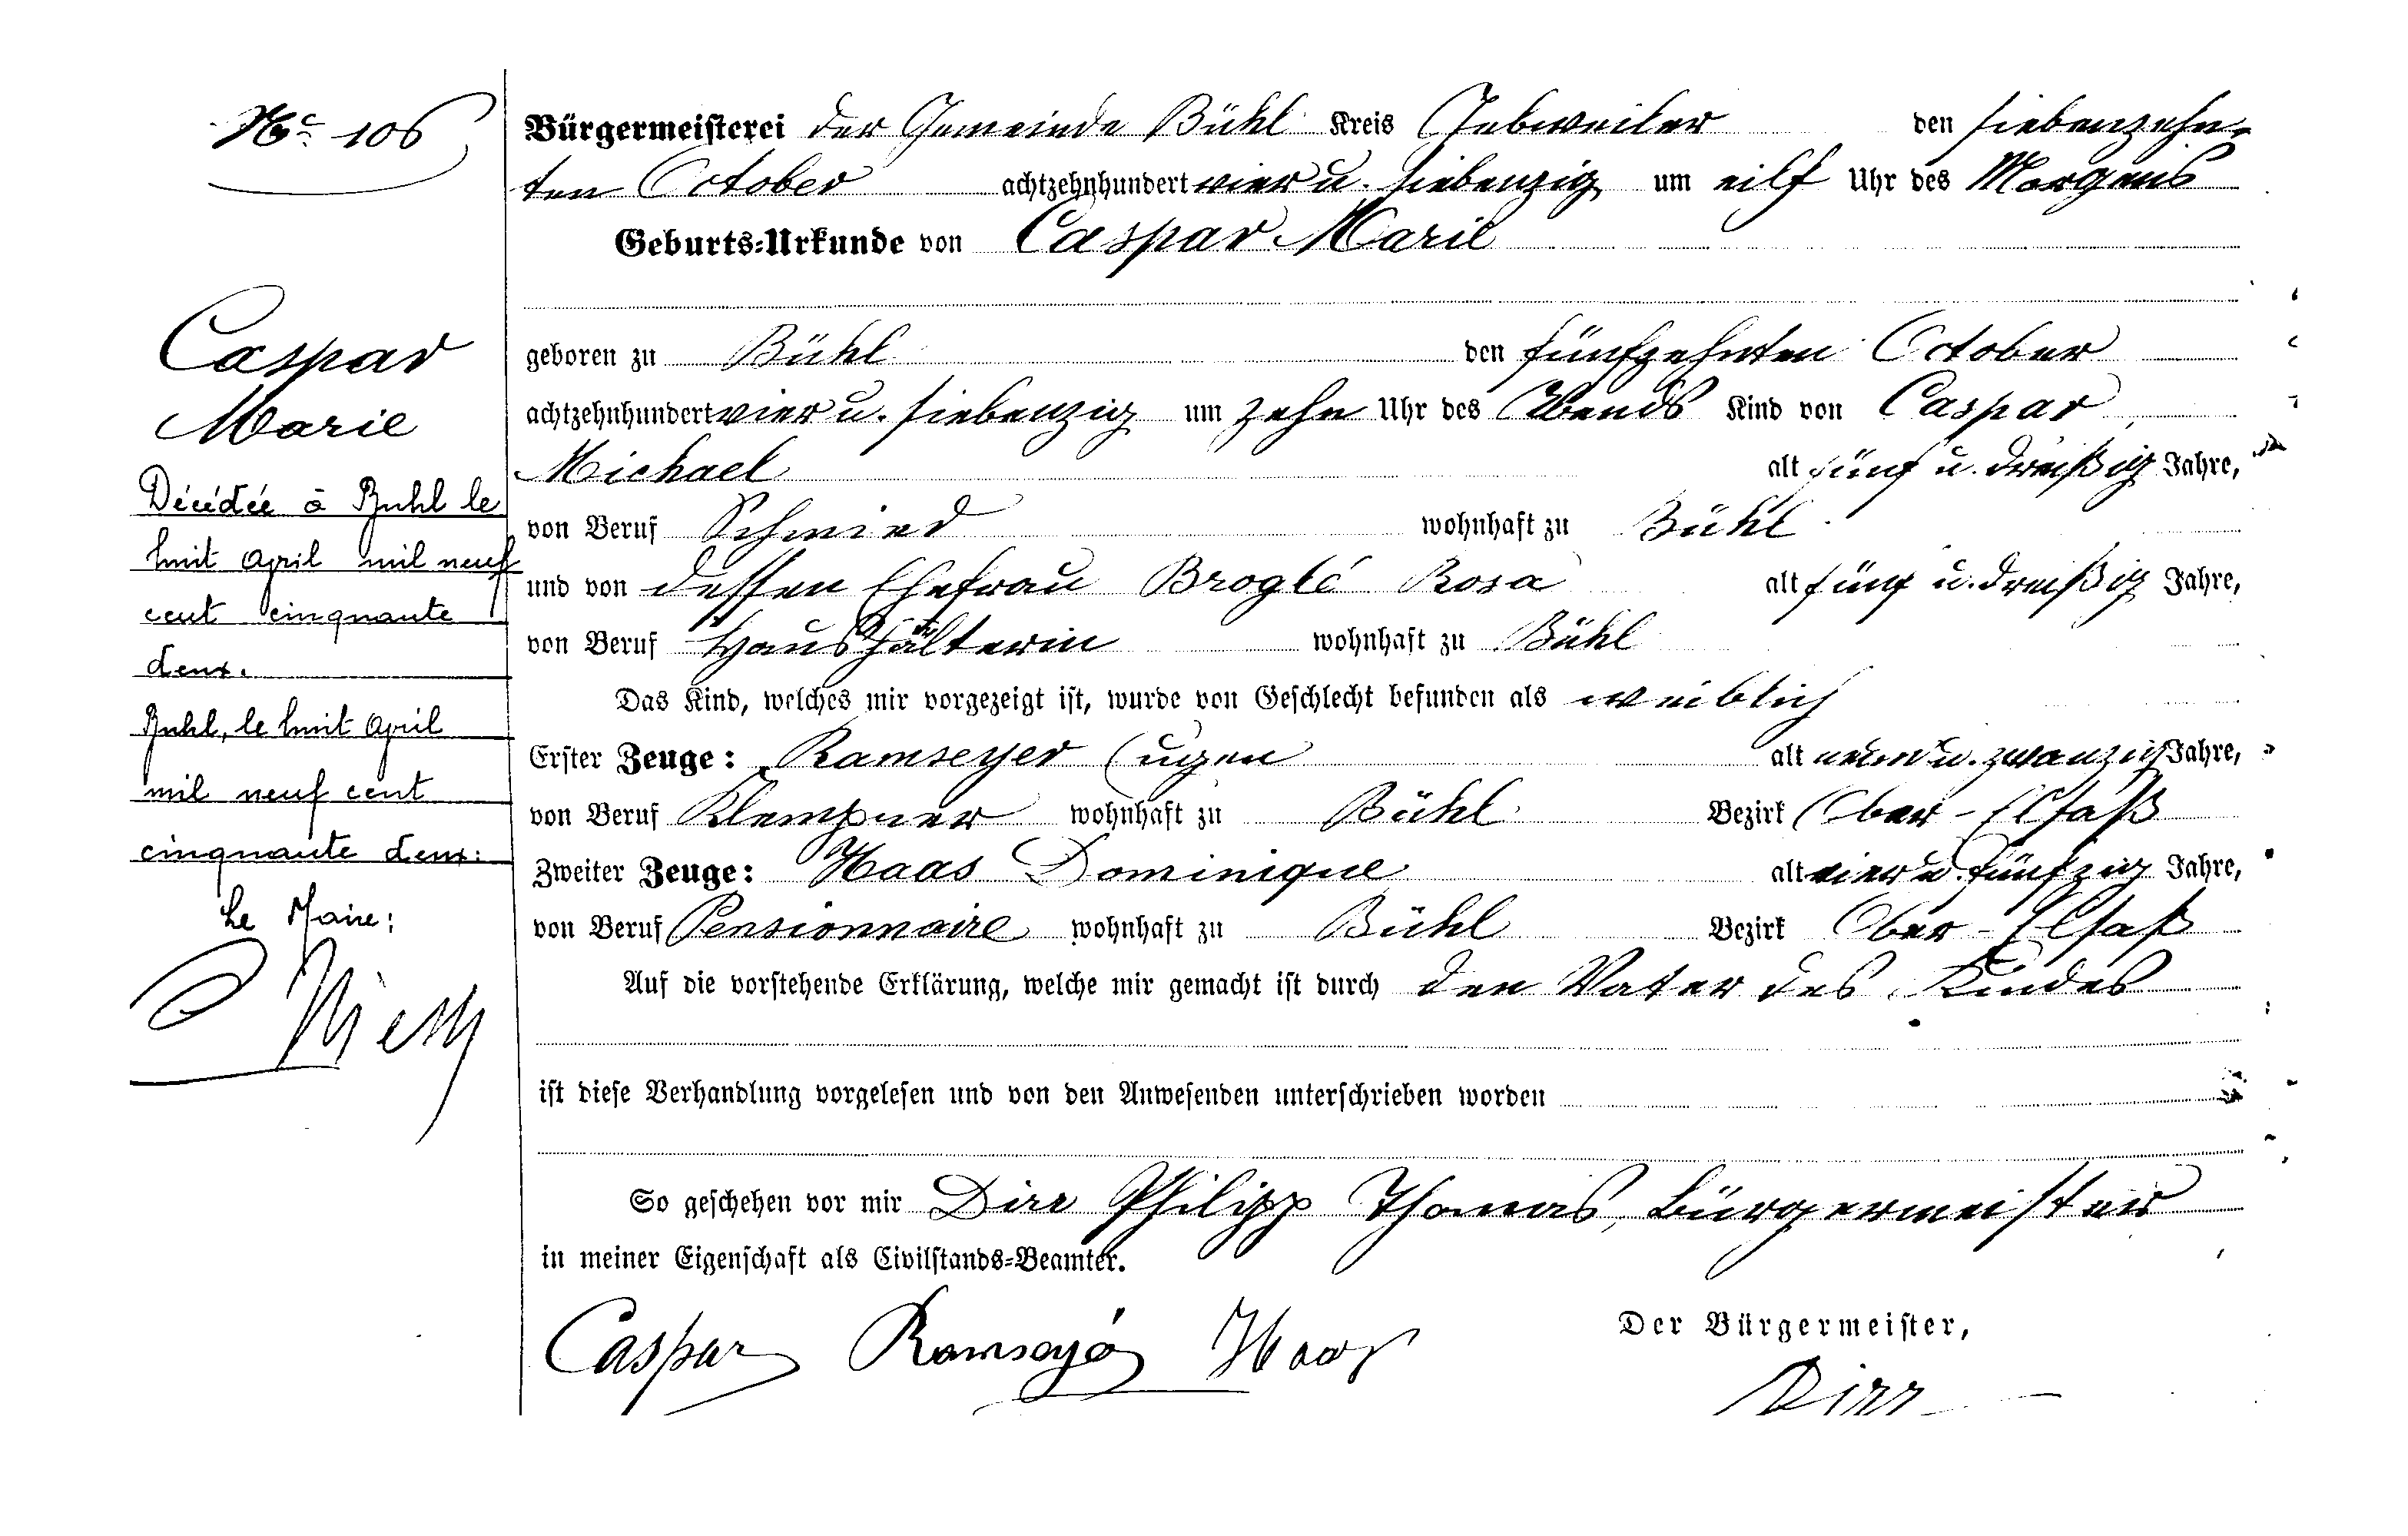 No 106
Caspar
Marie
Décédée à Buhl le
huit Avril mil neuf
cent cinquante
deux.
Buhl, le huit Avril
mil neuf cent
cinquante deux:
Le Maire:
Bürgermeisterei der Gemeinde Bühl Kreis Gebweiler den siebenzehn-
ten October achtzehnhundert vier u. siebenzig um eilf Uhr des Morgens
Geburts-Urkunde von Caspar Marie
geboren zu Bühl den fünfzehnten October
achtzehnhundert vier u. siebenzig um zehn Uhr des Abends Kind von Caspar
Michael alt fünf u. dreißig Jahre,
von Beruf Schmied wohnhaft zu Bühl
und von dessen Ehefrau Broglé Rosa alt fünf u. dreißig Jahre,
von Beruf Haushälterin wohnhaft zu Bühl
Das Kind, welches mir vorgezeigt ist, wurde von Geschlecht befunden als weiblich
Erster Zeuge: Ramseyer Eugen alt neun u. zwanzig Jahre,
von Beruf Klempner wohnhaft zu Bühl Bezirk Ober-Elsaß
Zweiter Zeuge: Haas Dominique alt vier u. fünfzig Jahre,
von Beruf Pensionnaire wohnhaft zu Bühl Bezirk Ober-Elsaß
Auf die vorstehende Erklärung, welche mir gemacht ist durch den Vater des Kindes
ist diese Verhandlung vorgelesen und von den Anwesenden unterschrieben worden
So geschehen vor mir Dirr Philipp Thomas, Bürgermeister
in meiner Eigenschaft als Civilstands-Beamter.
Der Bürgermeister,
Caspar Ramseyer Haas
Dirr